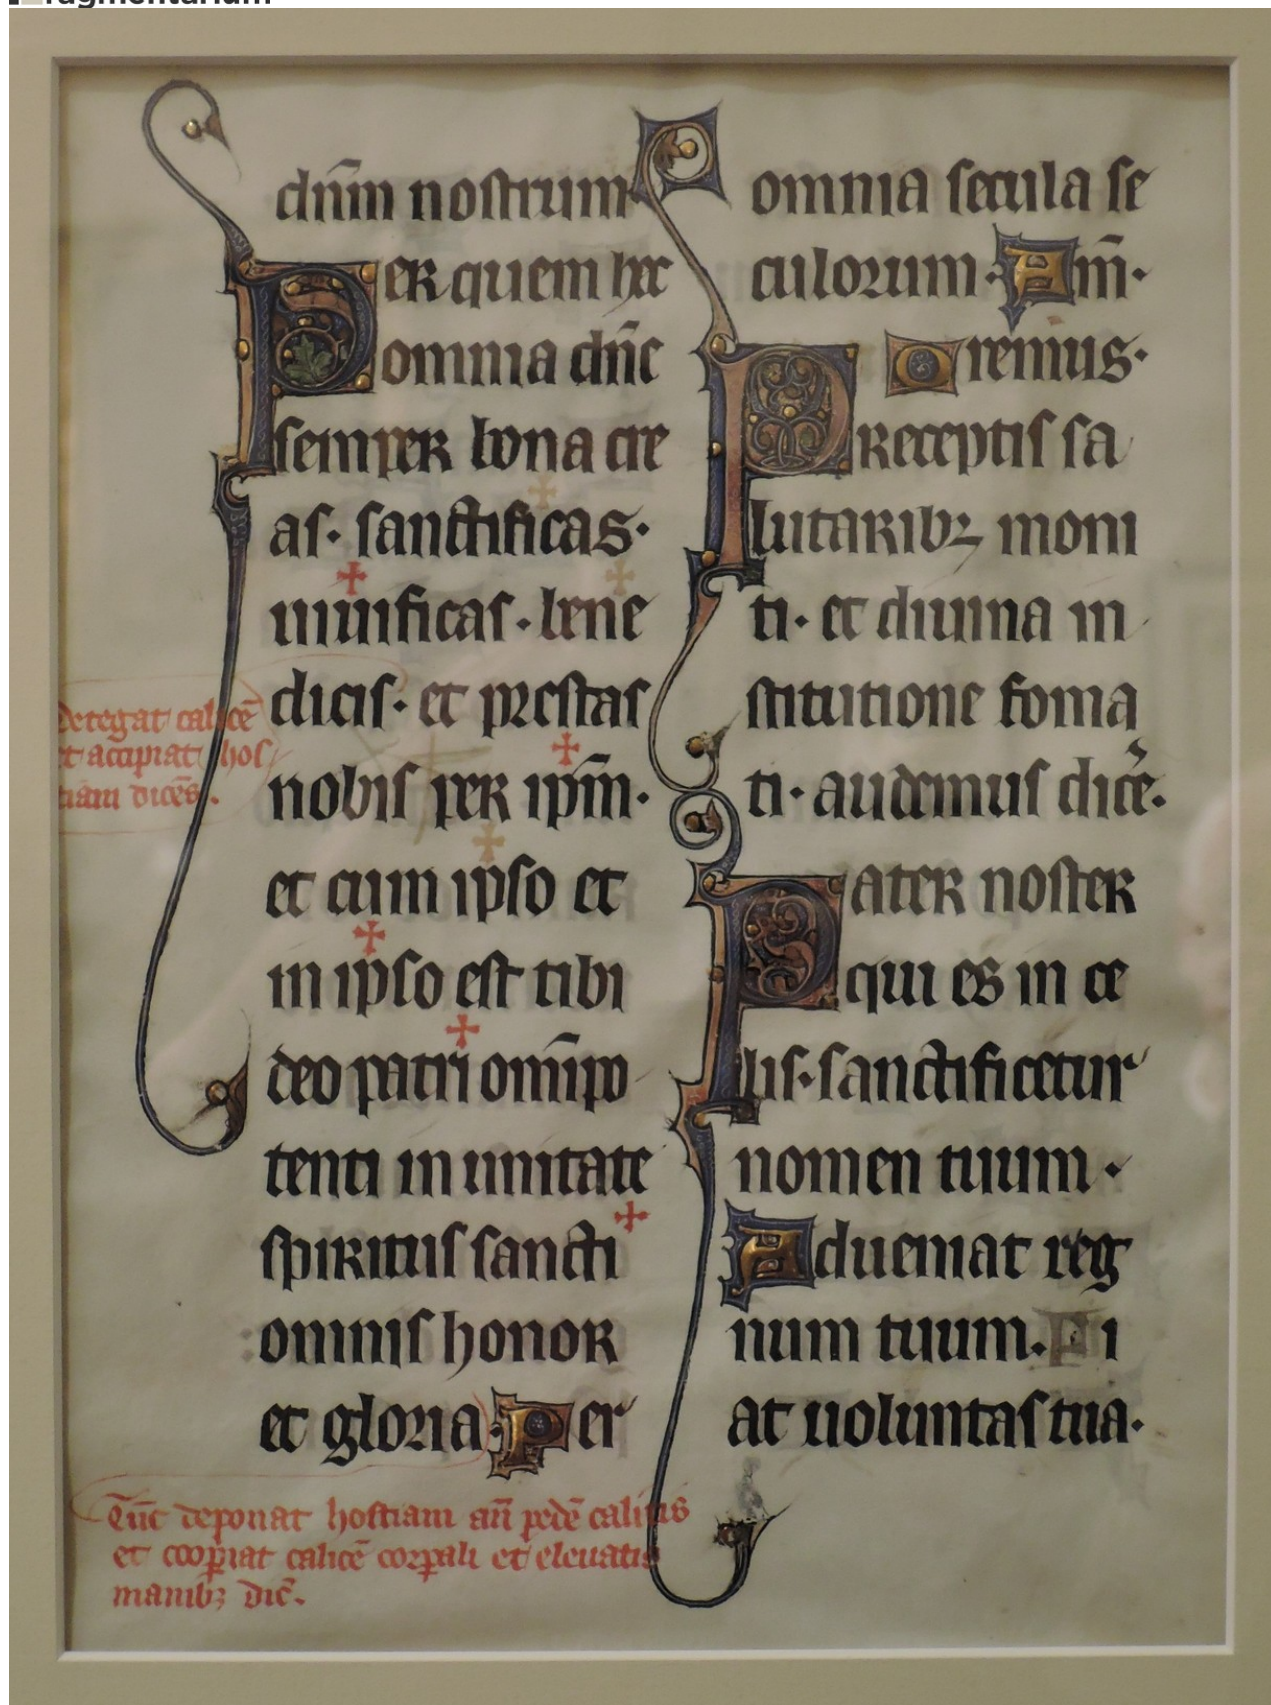 ragmentarium
dn̄m nostrum
Per quem hec
omnia dn̄e
semper bona cre
as· sanctificas·
uiuificas· bene
dicis· et prestas
nobis per ip̄m·
et cum ipso et
in ipso est tibi
deo patri om̄ipo
tenti in unitate
spiritus sancti
omnis honor
et gloria· Per
detegat calicē
et accipiat hos
tiam dicēs.
Tūc deponat hostiam an̄ pedē calicis
et coop̄iat calicē corp̄ali et eleuatis
manibꝫ dic̄.
omnia secula se
culorum· Am̄·
Oremus·
Preceptis sa
lutaribꝫ moni
ti· et diuina in
stitutione forma
ti· audemus dicēe·
Pater noster
qui es in ce
lis· sanctificetur
nomen tuum·
Adueniat reg
num tuum. Fi
at uoluntas tua·